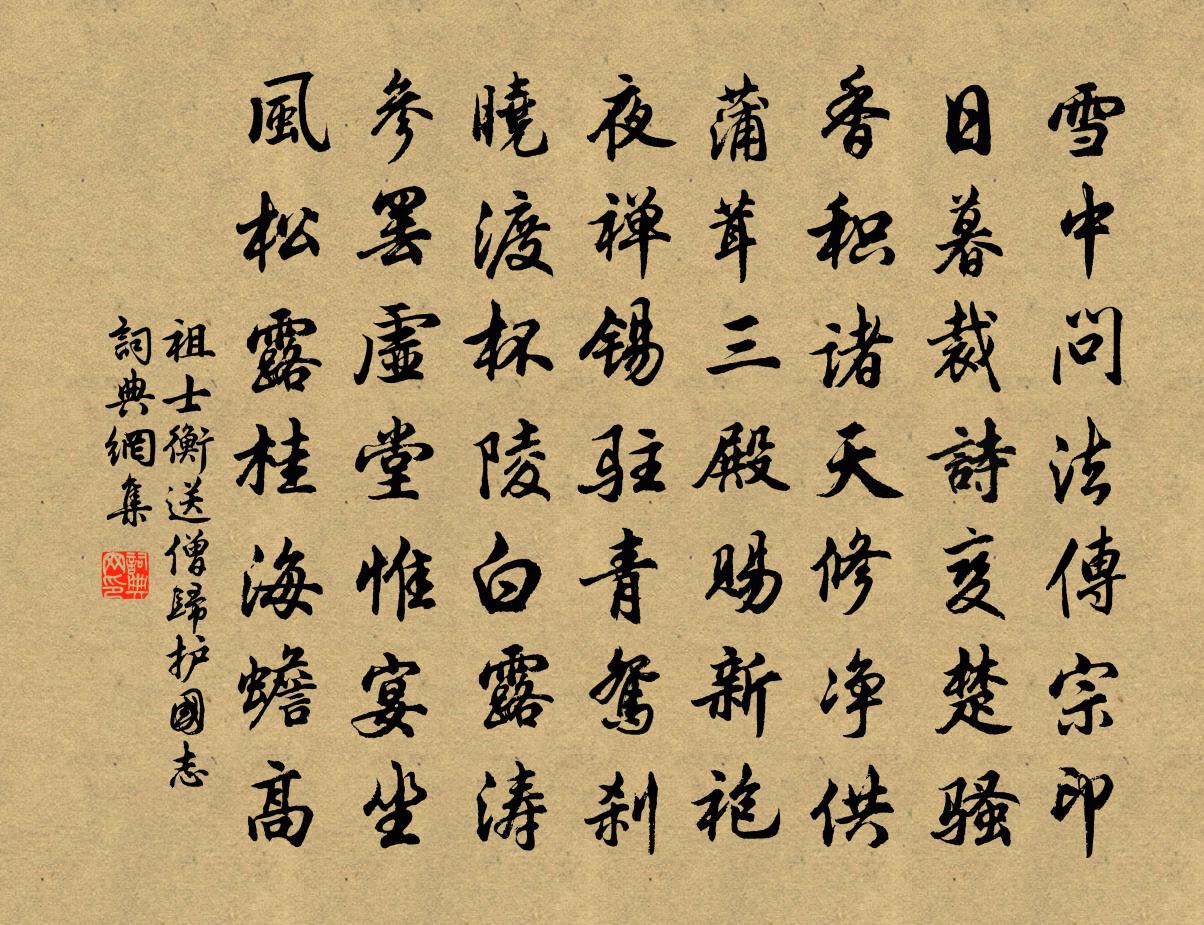 雪中问法傳宗印
日暮裁詩变楚骚
香积诸天修净供
蒲茸三殿赐新袍
夜禅锡驻青鸳刹
曉渡杯陵白露涛
参罢虚堂惟宴坐
風松露桂海蟾高
祖士衡送僧歸护國志
詞典網集
詞典網印